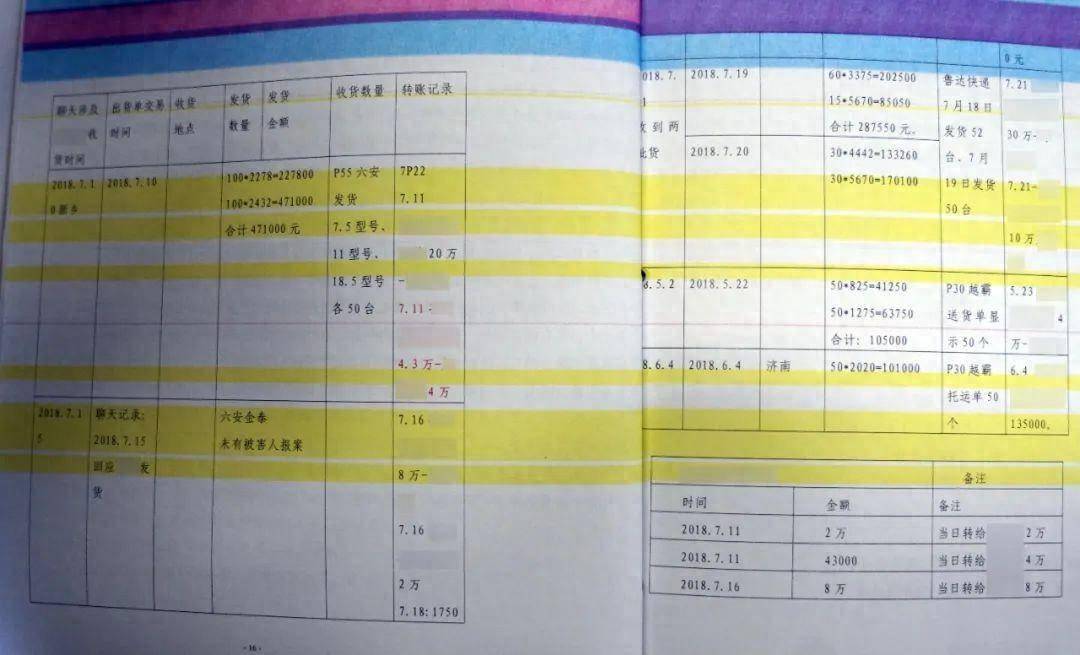 聊天涉及 出货单交易 收货 发货 发货 收货数量 转账记录
收 时间 地点 数量 金额
货时间
2018.7.1 2018.7.10 100*2278=227800 P55六安 7P22
0新乡 100*2432=471000 发货 7.11
合计471000元 7.5型号、
11型号、 20万
18.5型号 -
各50台 7.11
4.3万-
4万
2018.7.1 聊天记录: 六安金泰 7.16
5 2018.7.15 未有被害人报案
回应 发 8万-
货
7.16
2万
7.18:1750
-16-
0元
018.7. 2018.7.19 60*3375=202500 鲁达快通 7.21
1 15*5670=85050 7月18日
收到两 合计287550元。 发货52 30万-
批货 2018.7.20 30*4442=133260 台、7月
30*5670=170100 19日发货 7.21-
50台
10万
8.5.2 2018.5.22 50*825=41250 P30越霸 5.23
50*1275=63750 送货单显 4
合计:105000 示50个 万-
8.6.4 2018.6.4 济南 50*2020=101000 P30越霸 6.4
托运单50
个 135000。
备注
时间 金额 备注
2018.7.11 2万 当日转给 2万
2018.7.11 43000 当日转给 4万
2018.7.16 8万 当日转给 8万